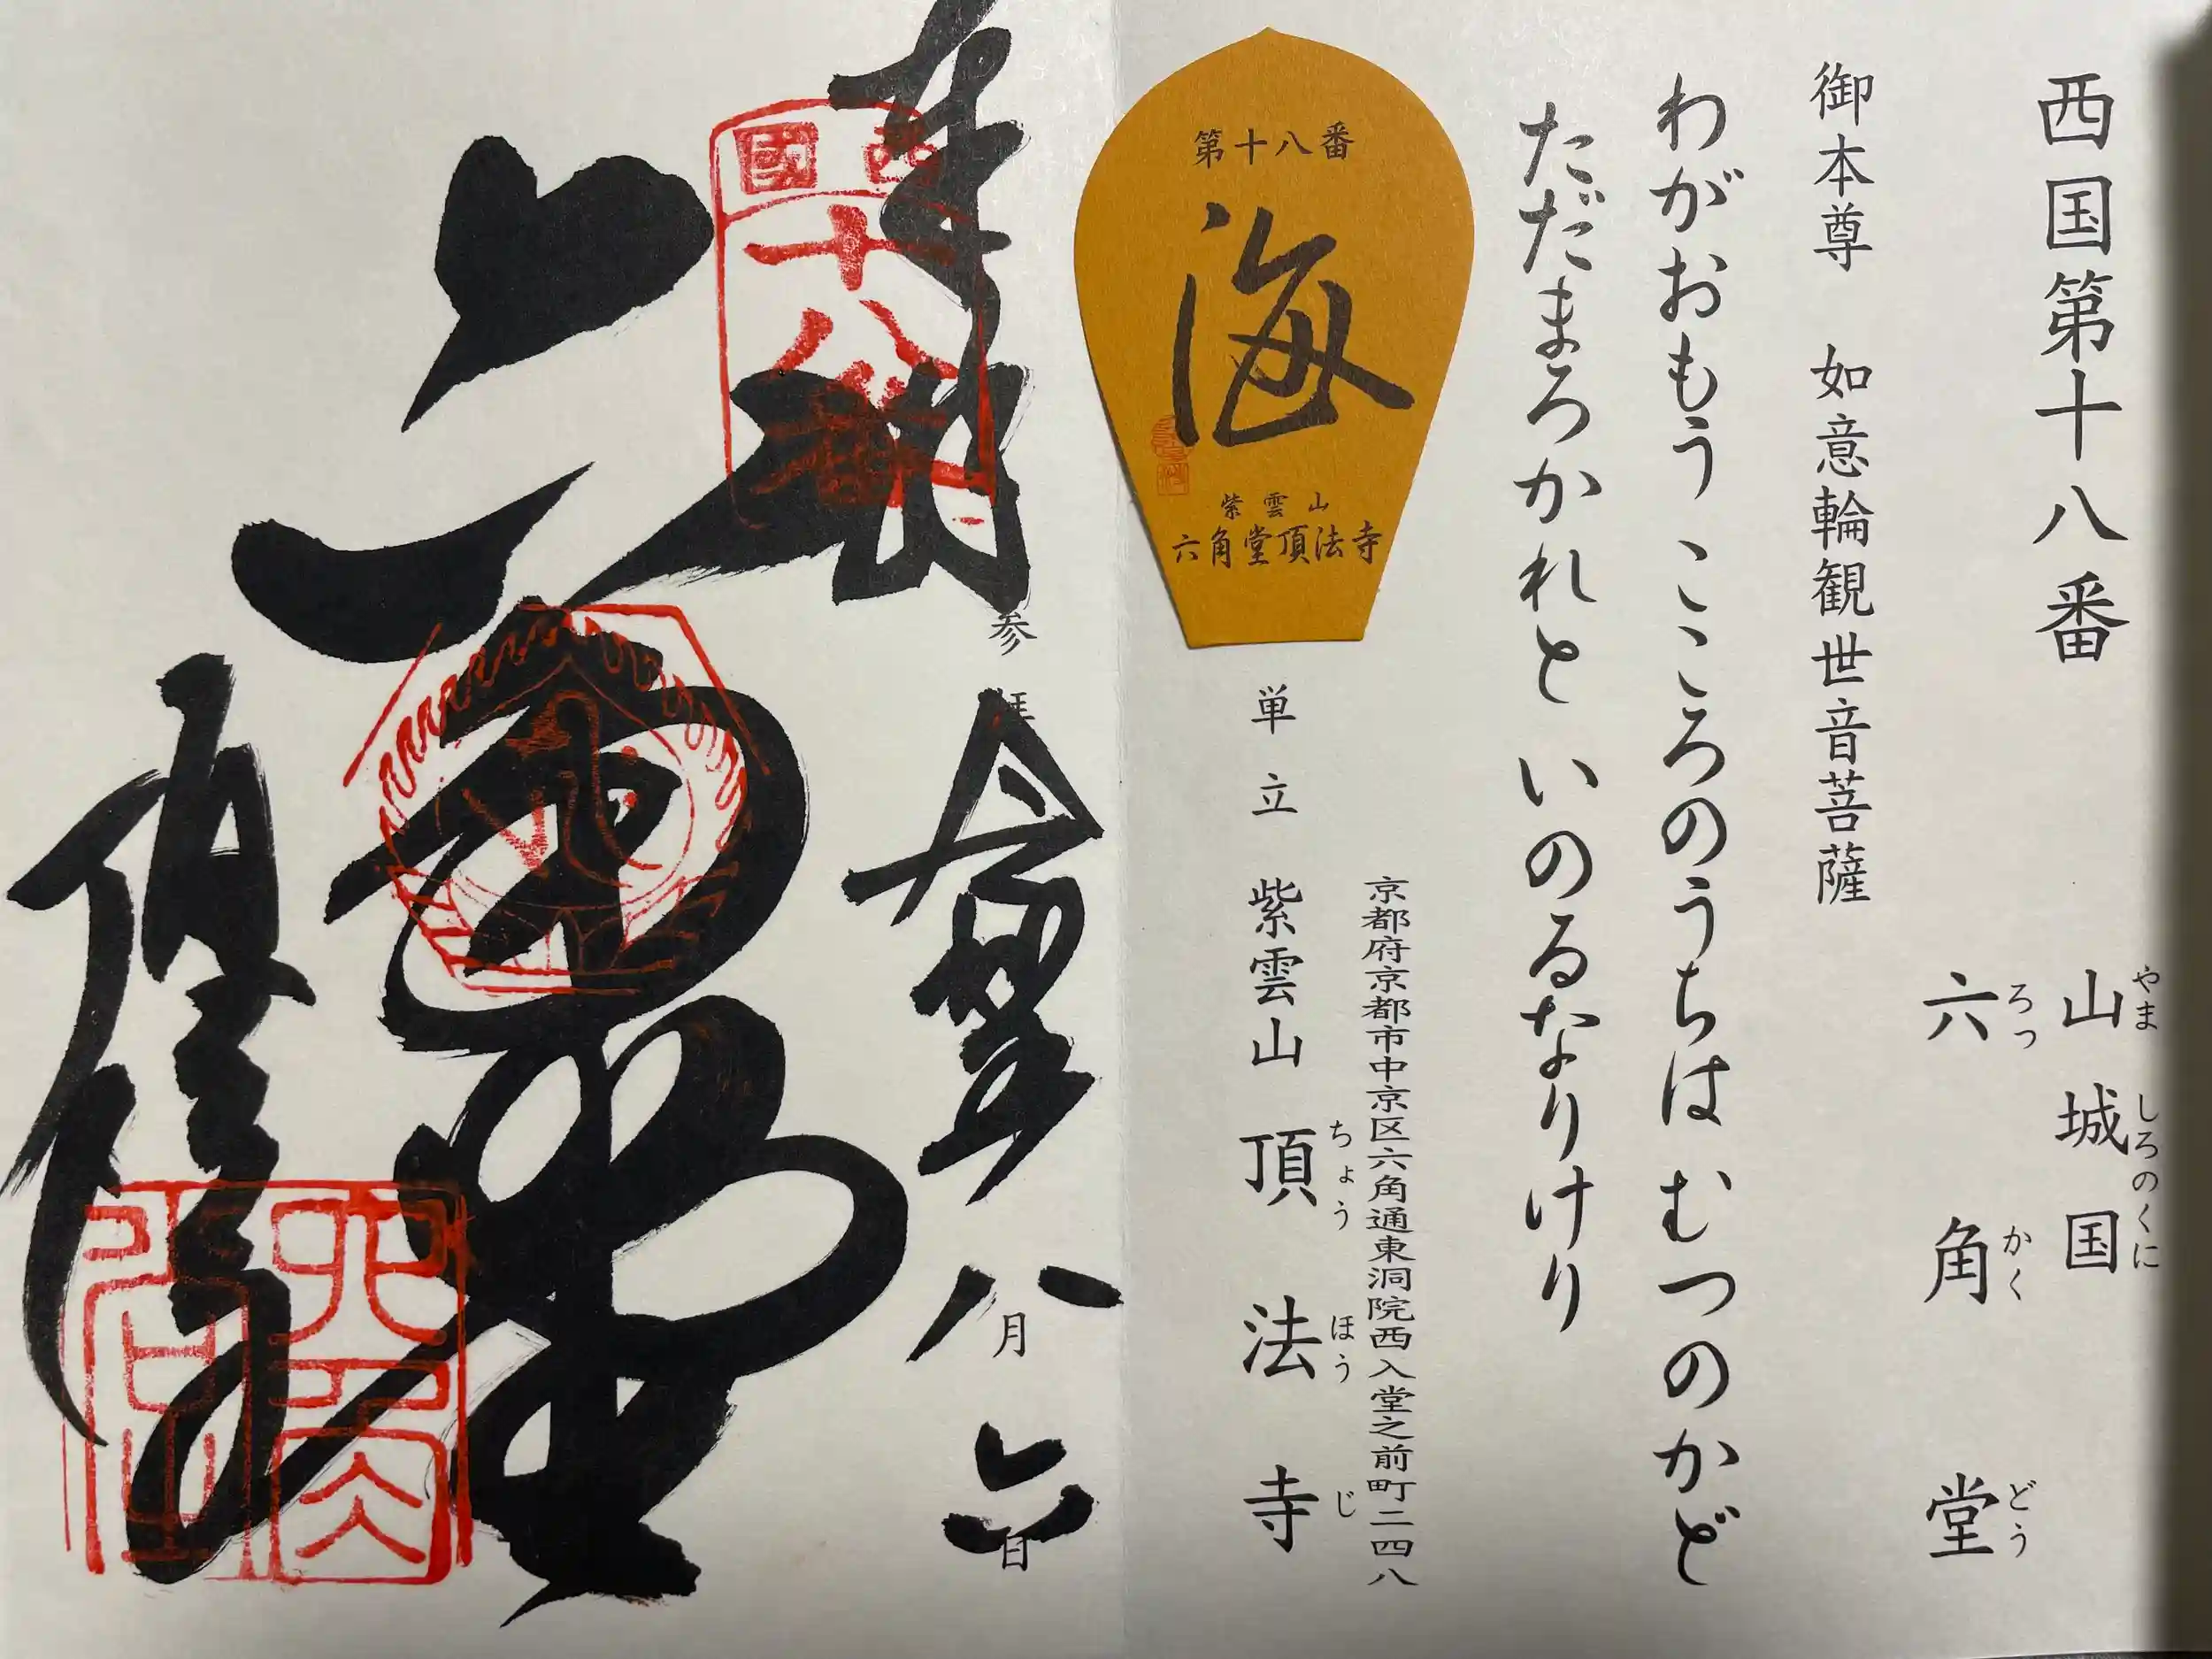 西国第十八番
山城国
やましろのくに
六角堂
ろっかくどう
御本尊 如意輪観世音菩薩
わがおもう こころのうちは むつのかど
ただまろかれと いのるなりけり
第十八番
海
紫雲山
六角堂頂法寺
京都府京都市中京区六角通東洞院西入堂之前町二四八
単立 紫雲山 頂法寺
ちょうほうじ
奉拝
参拝
八月六日
西國
十八番
六角堂